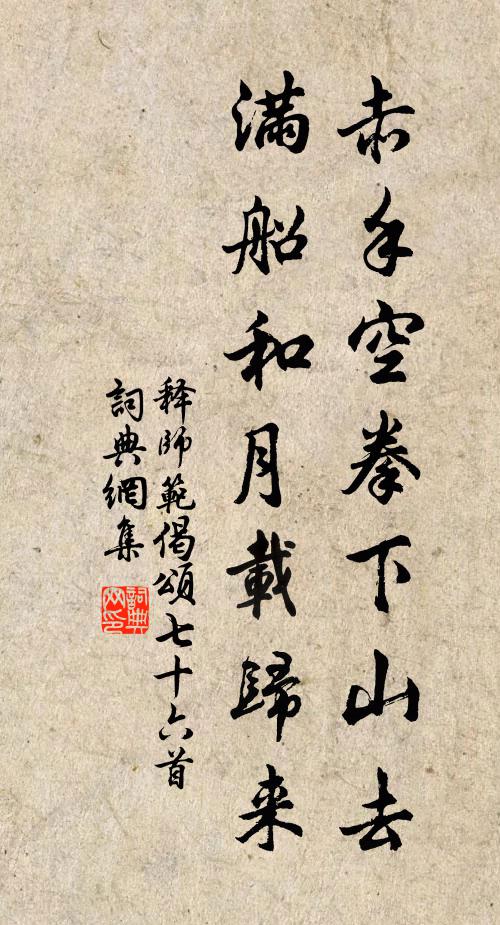 赤手空拳下山去
满船和月載歸来
释師範偈頌七十六首
詞典網集
詞典网印